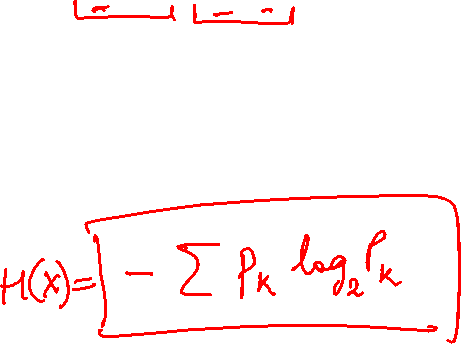 H(x) = - ∑ P_K log_2 P_K